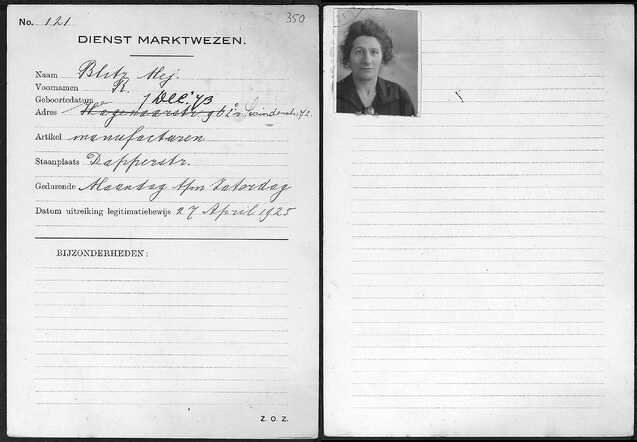 No. 121 350
DIENST MARKTWEZEN.
Naam Blitz Mej.
Voornamen R.
Geboortedatum 1 Dec. '73
Adres Swindenstr. 72
Artikel manufacturen
Staanplaats Dapperstr.
Gedurende Maandag t/m Zaterdag
Datum uitreiking legitimatiebewijs 27 April 1925
BIJZONDERHEDEN:
Z. O. Z.